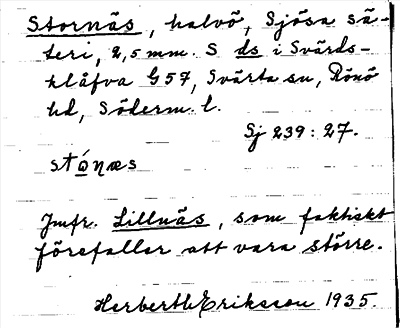 Stornäs, halvö, Sjösa sä-
teri, 2,5 mm. S ds i Svärds-
klåfva G57, Svärta sn, Rönö
hd, Söderm. l.
Sj 239:27.
stónæs
Jmfr. Lillnäs, som faktiskt
förefaller att vara större.
Herberth Eriksson 1935.